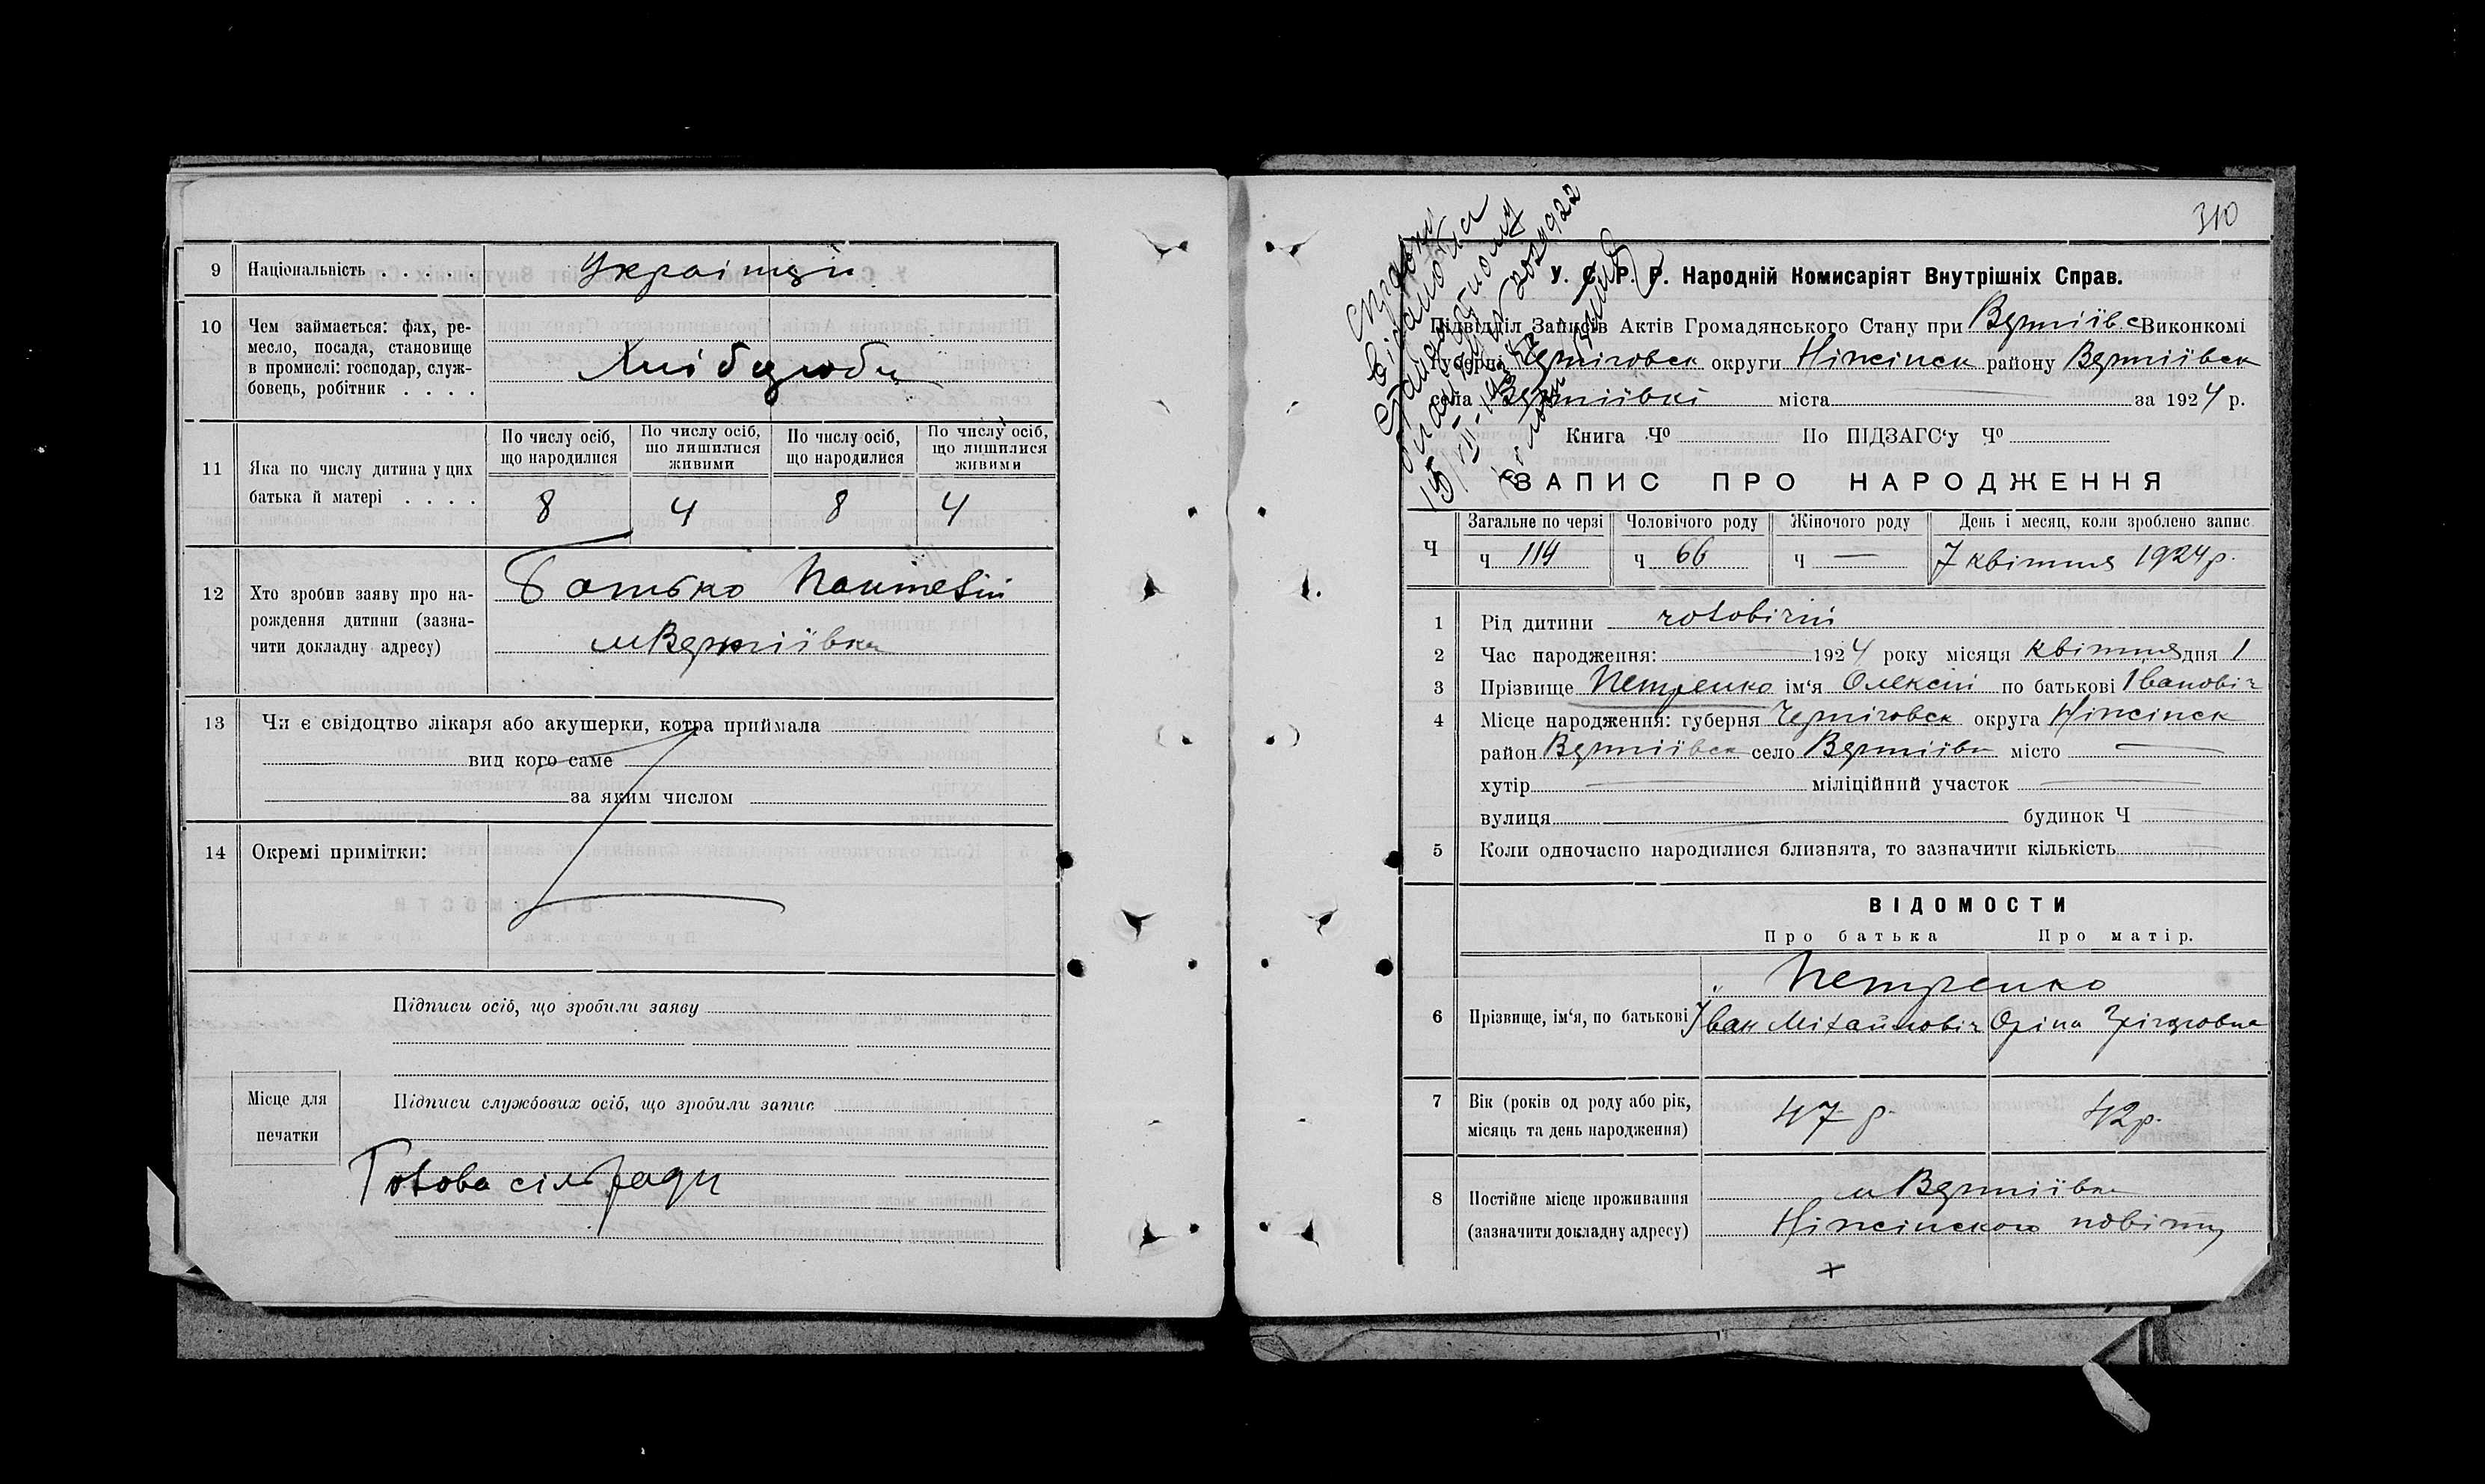 9 Національність . . . . . Українці
10 Чем займається: фах, ре-
месло, посада, становище
в промислі: господар, служ-
бовець, робітник . . . . Хлібороби
11 Яка по числу дитина у цих
батька й матері . . . .
По числу осіб, що народилися По числу осіб, що лишилися живими По числу осіб, що народилися По числу осіб, що лишилися живими
8 4 8 4
12 Хто зробив заяву про на-
рождення дитини (зазна-
чити докладну адресу)
Батько
м Вертіївка
13 Чи є свідоцтво лікаря або акушерки, котра приймала
вид кого саме
за яким числом
14 Окремі примітки:
Підписи осіб, що зробили заяву
Місце для
печатки
Підписи службових осіб, що зробили запис
Голова сільради
310
У. С. Р. Р. Народній Комисаріят Внутрішніх Справ.
Підвідділ Записів Актів Громадянського Стану при Вертіівс Виконкомі
губерні Черніговск округи Ніжінск району Вертіівск
села Вертіївкі міста за 1924 р.
Книга Чо По ПІДЗАГС‘у Чо
ЗАПИС ПРО НАРОДЖЕННЯ
Ч Загальне по черзі Чоловічого роду Жіночого роду День і месяц, коли зроблено запис
ч 114 ч 66 ч — 7 квітня 1924 р.
1 Рід дитини чоловічій
2 Час народження: 1924 року місяця квітня дня 1
3 Прізвище Петренко ім‘я Олексій по батькові Івановіч
4 Місце народження: губерня Черніговск округа Ніжінск
район Вертіївск село Вертіївк місто —
хутір — міліційний участок —
вулиця — будинок Ч —
5 Коли одночасно народилися близнята, то зазначити кількість —
ВІДОМОСТИ
Про батька Про матір.
Петренко
6 Прізвище, ім‘я, по батькові Іван Міхайловіч Оріна Грігоровна
7 Вік (років од роду або рік,
місяць та день народження) 47 р 42 р.
8 Постійне місце проживання
(зазначити докладну адресу)
м Вертіївка
Ніжінского повіту